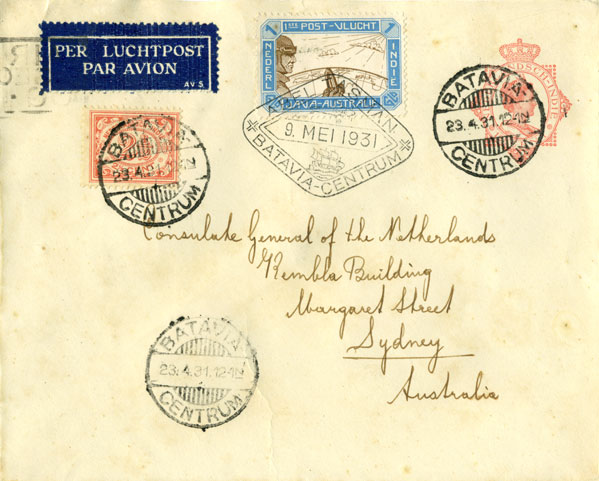 PER LUCHTPOST
PAR AVION
AV 5
1STE POST-VLUCHT
NEDERL INDIE
1 1
JAVA-AUSTRALIE
9. MEI 1931
BATAVIA-CENTRUM
BATAVIA-
23.4.31.12-1N
CENTRUM
BATAVIA-
23.4.31.12-1N
CENTRUM
Consulate General of the Netherlands
Kembla Building
Margaret Street
Sydney
Australia
BATAVIA-
23.4.31.12-1N
CENTRUM